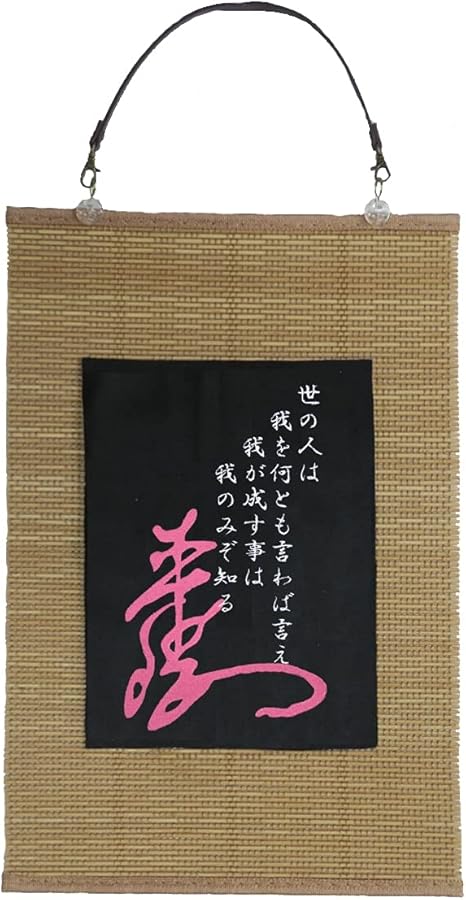 世の人は
我を何とも言わば言え
我が成す事は
我のみぞ知る